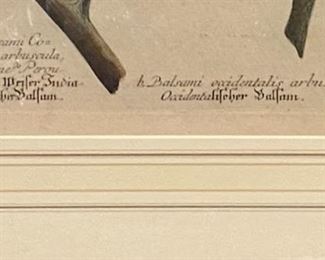 Co=
arbuscula,
Peru
Weiser India
her Balsam.
b. Balsami occidentalis arbu
Occidentalischer Balsam.